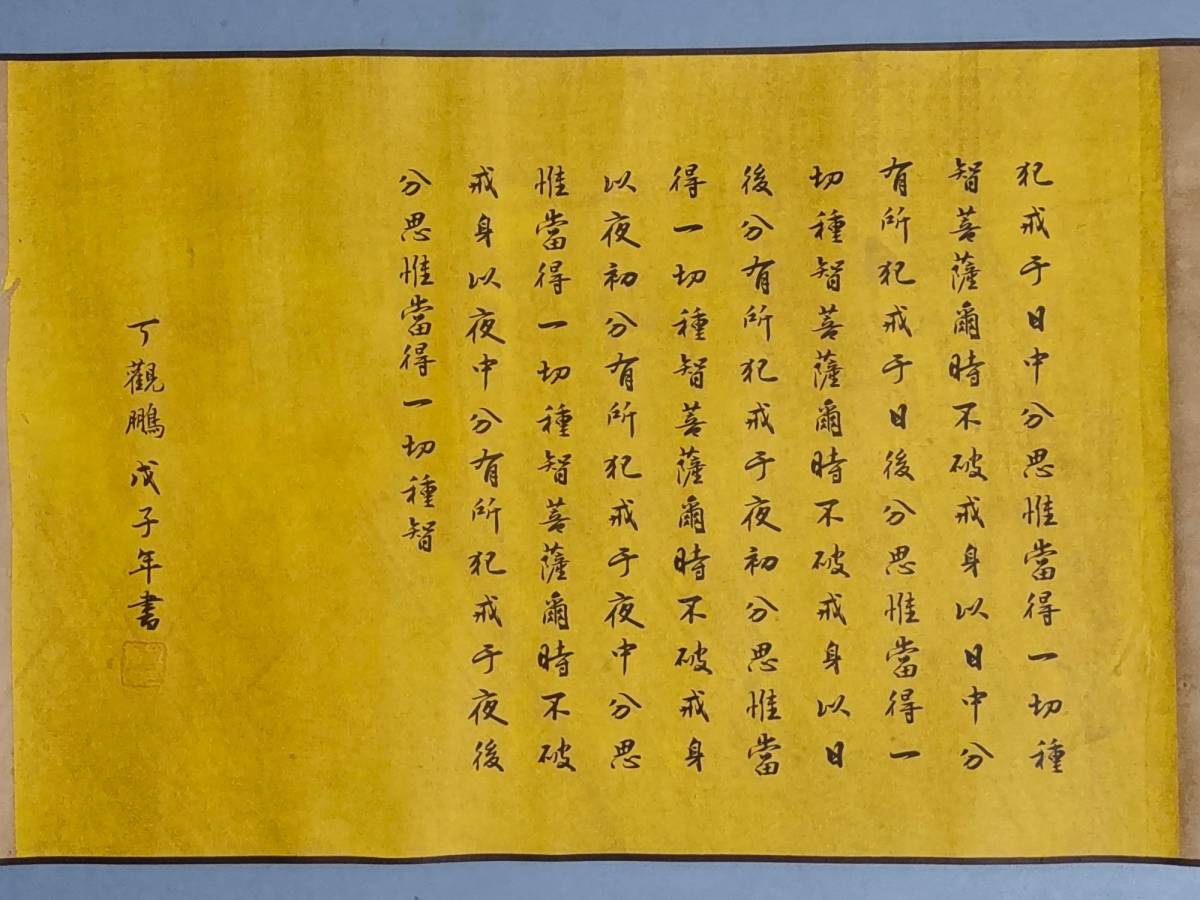 犯戒于日中分思惟當得一切種
智菩薩爾時不破戒身以日中分
有所犯戒于日後分思惟當得一
切種智菩薩爾時不破戒身以日
後分有所犯戒于夜初分思惟當
得一切種智菩薩爾時不破戒身
以夜初分有所犯戒于夜中分思
惟當得一切種智菩薩爾時不破
戒身以夜中分有所犯戒于夜後
分思惟當得一切種智
丁觀鵬戊子年書